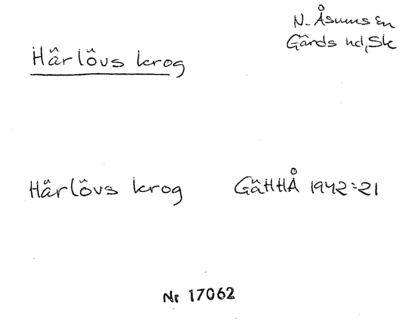 N. Åsums sn
Gärds hd, Sk
Härlövs krog
Härlövs krog GäHHÅ 1942:21
Nr 17062